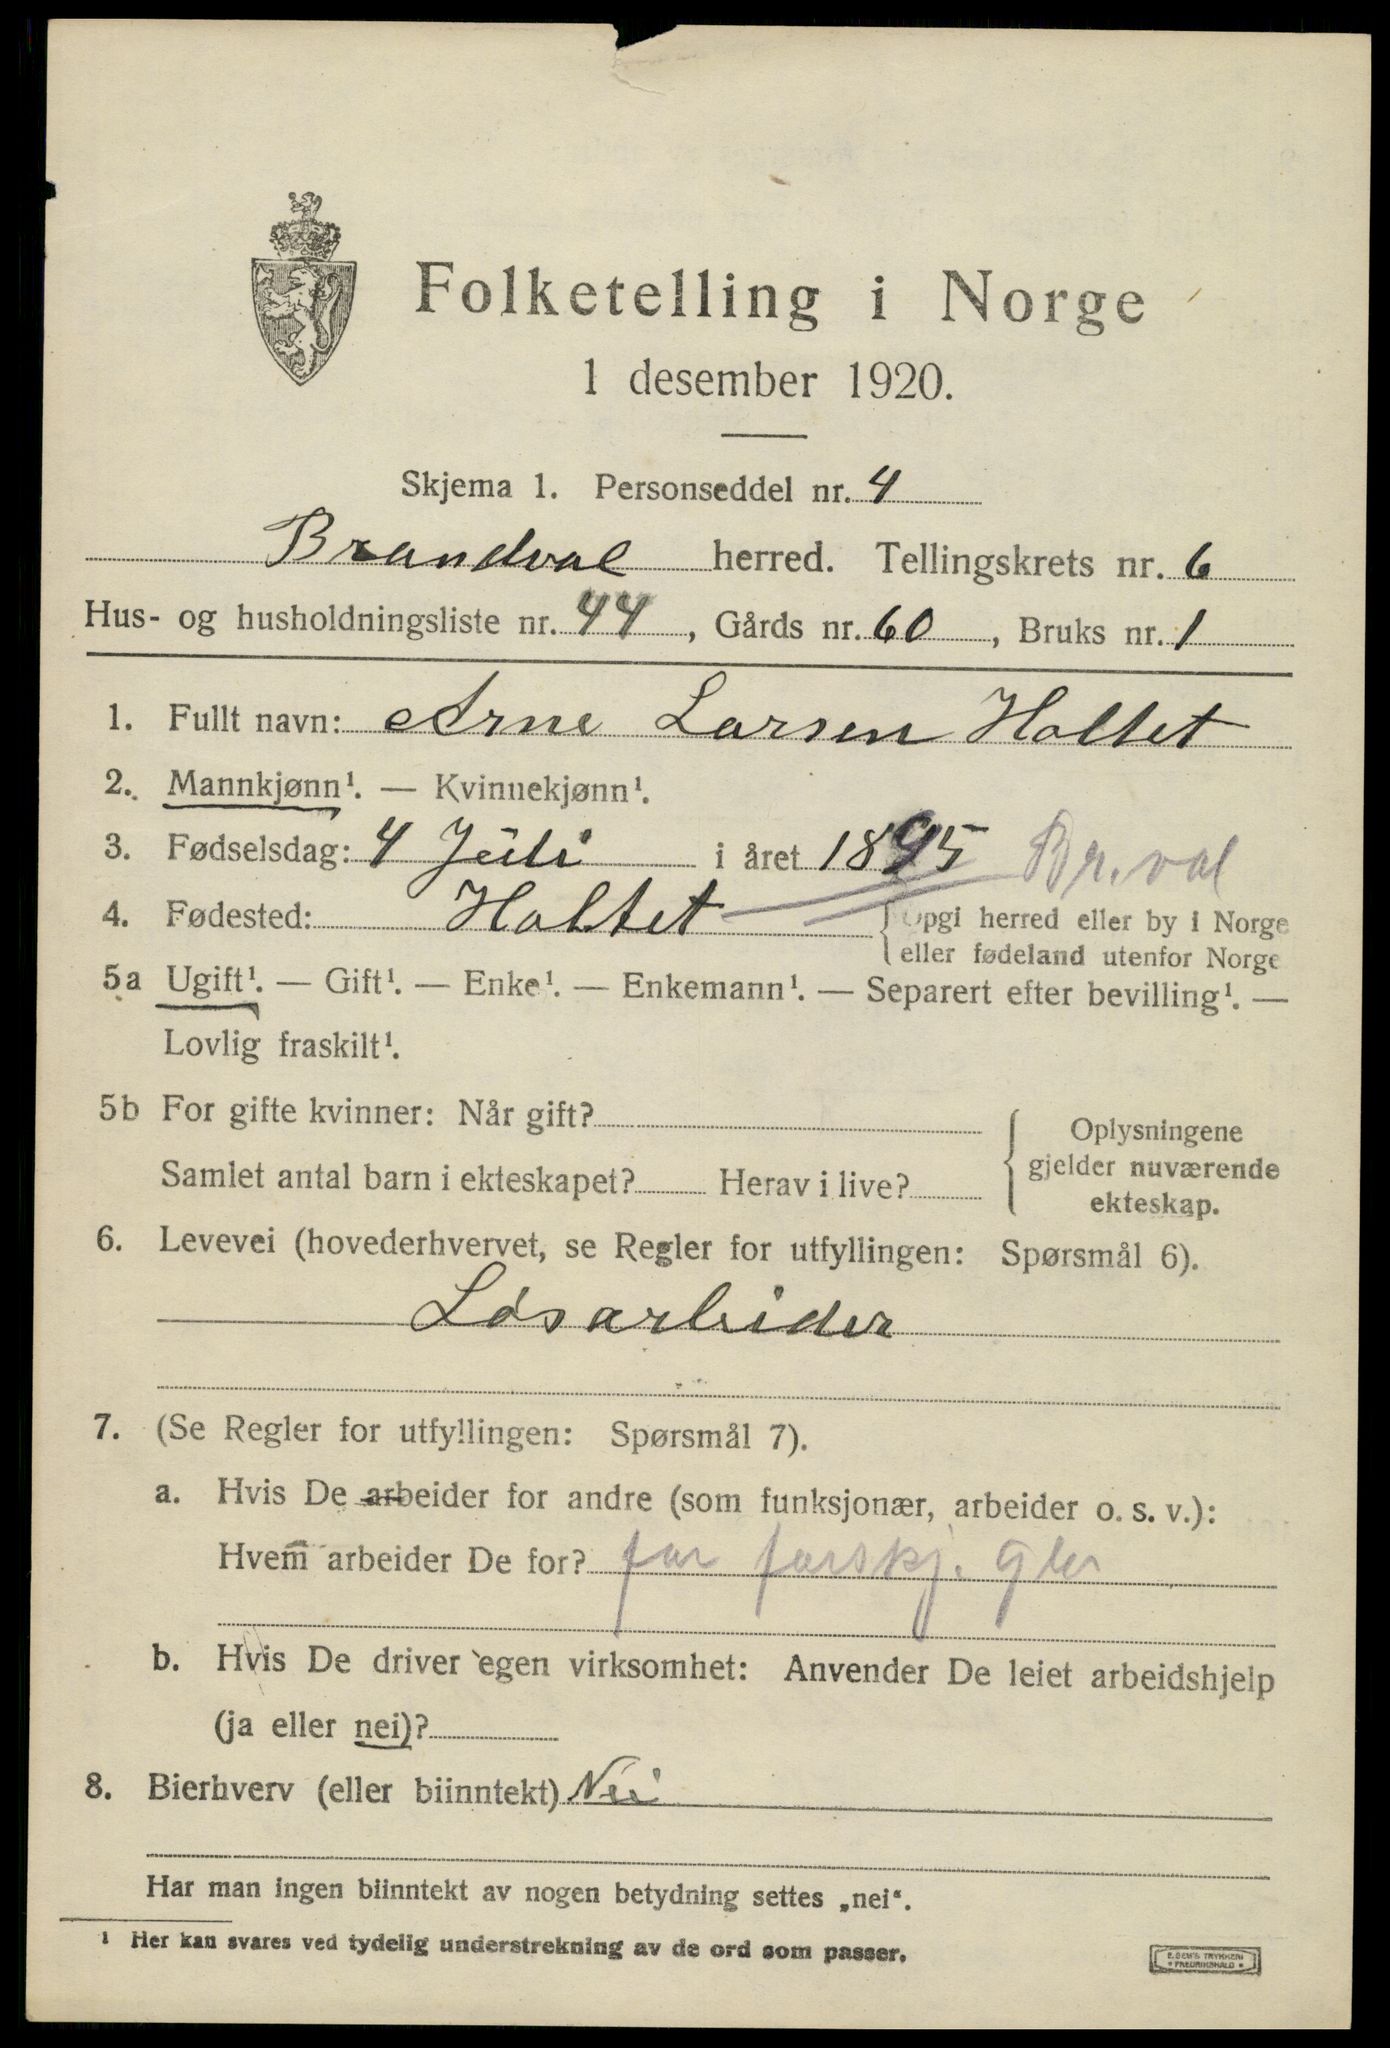 Folketelling i Norge
1 desember 1920.
Skjema 1. Personseddel nr. 4
Brandval herred. Tellingskrets nr. 6
Hus- og husholdningsliste nr. 44, Gårds nr. 60, Bruks nr. 1
1. Fullt navn: Arne Larsen Holtet
2. Mannkjønn¹. — Kvinnekjønn¹.
3. Fødselsdag: 4 Juli i året 1895 Br.val
4. Fødested: Holtet {Opgi herred eller by i Norge
eller fødeland utenfor Norge
5a Ugift¹. — Gift¹. — Enke¹. — Enkemann¹. — Separert efter bevilling¹. —
Lovlig fraskilt¹.
5b For gifte kvinner: Når gift?
Samlet antal barn i ekteskapet? Herav i live?
{Oplysningene
gjelder nuværende
ekteskap.
6. Levevei (hovederhvervet, se Regler for utfyllingen: Spørsmål 6).
Løsarbeider
7. (Se Regler for utfyllingen: Spørsmål 7).
a. Hvis De arbeider for andre (som funksjonær, arbeider o. s. v.):
Hvem arbeider De for? for forskj.
b. Hvis De driver egen virksomhet: Anvender De leiet arbeidshjelp
(ja eller nei)?
8. Bierhverv (eller biinntekt) Nei
Har man ingen biinntekt av nogen betydning settes „nei“.
¹ Her kan svares ved tydelig understrekning av de ord som passer.
E. SEM'S TRYKKERI
• FREDRIKSHALD •